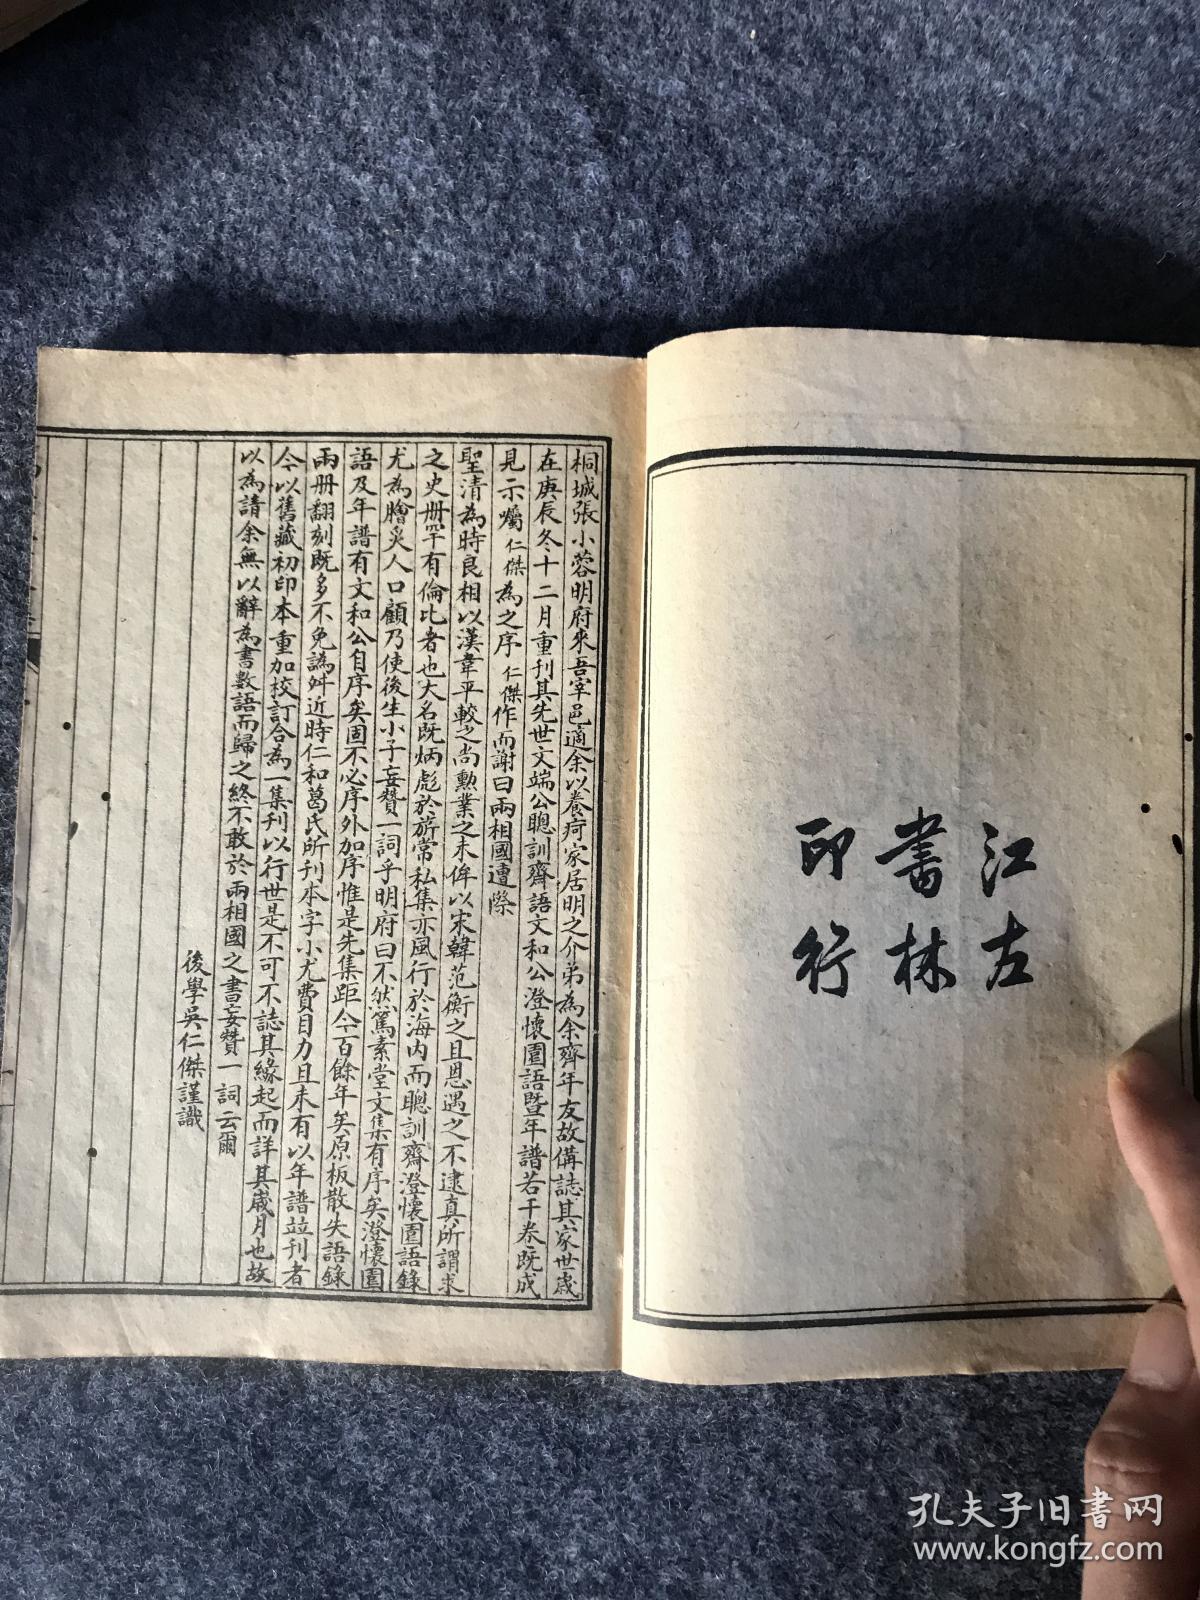 江左
書林
印行
桐城張小蓉明府來吾宰邑適余以養疴家居明之介弟為余齊年友故備誌其家世歲
在庚辰冬十二月重刊其先世文端公聰訓齋語文和公澄懷園語暨年譜若干卷既成
見示囑仁傑為之序仁傑作而謝曰兩相國遭際
聖清為時良相以漢韋平較之尚勲業之未侔以宋韓范衡之且恩遇之不逮真所謂求
之史册罕有倫比者也大名既炳彪於旂常私集亦風行於海内而聰訓齋澄懷園語錄
尤為膾炙人口顧乃使後生小子妄贊一詞乎明府曰不然篤素堂文集有序矣澄懷園
語及年譜有文和公自序矣固不必序外加序惟是先集距今百餘年矣原板散失語錄
兩册翻刻既多不免譌舛近時仁和葛氏所刊本字小尤費目力且未有以年譜竝刊者
今以舊藏初印本重加校訂合為一集刊以行世是不可不誌其緣起而詳其歲月也故
以為請余無以辭為書數語而歸之終不敢於兩相國之書妄贊一詞云爾
後學吳仁傑謹識
孔夫子旧书网
www.kongfz.com